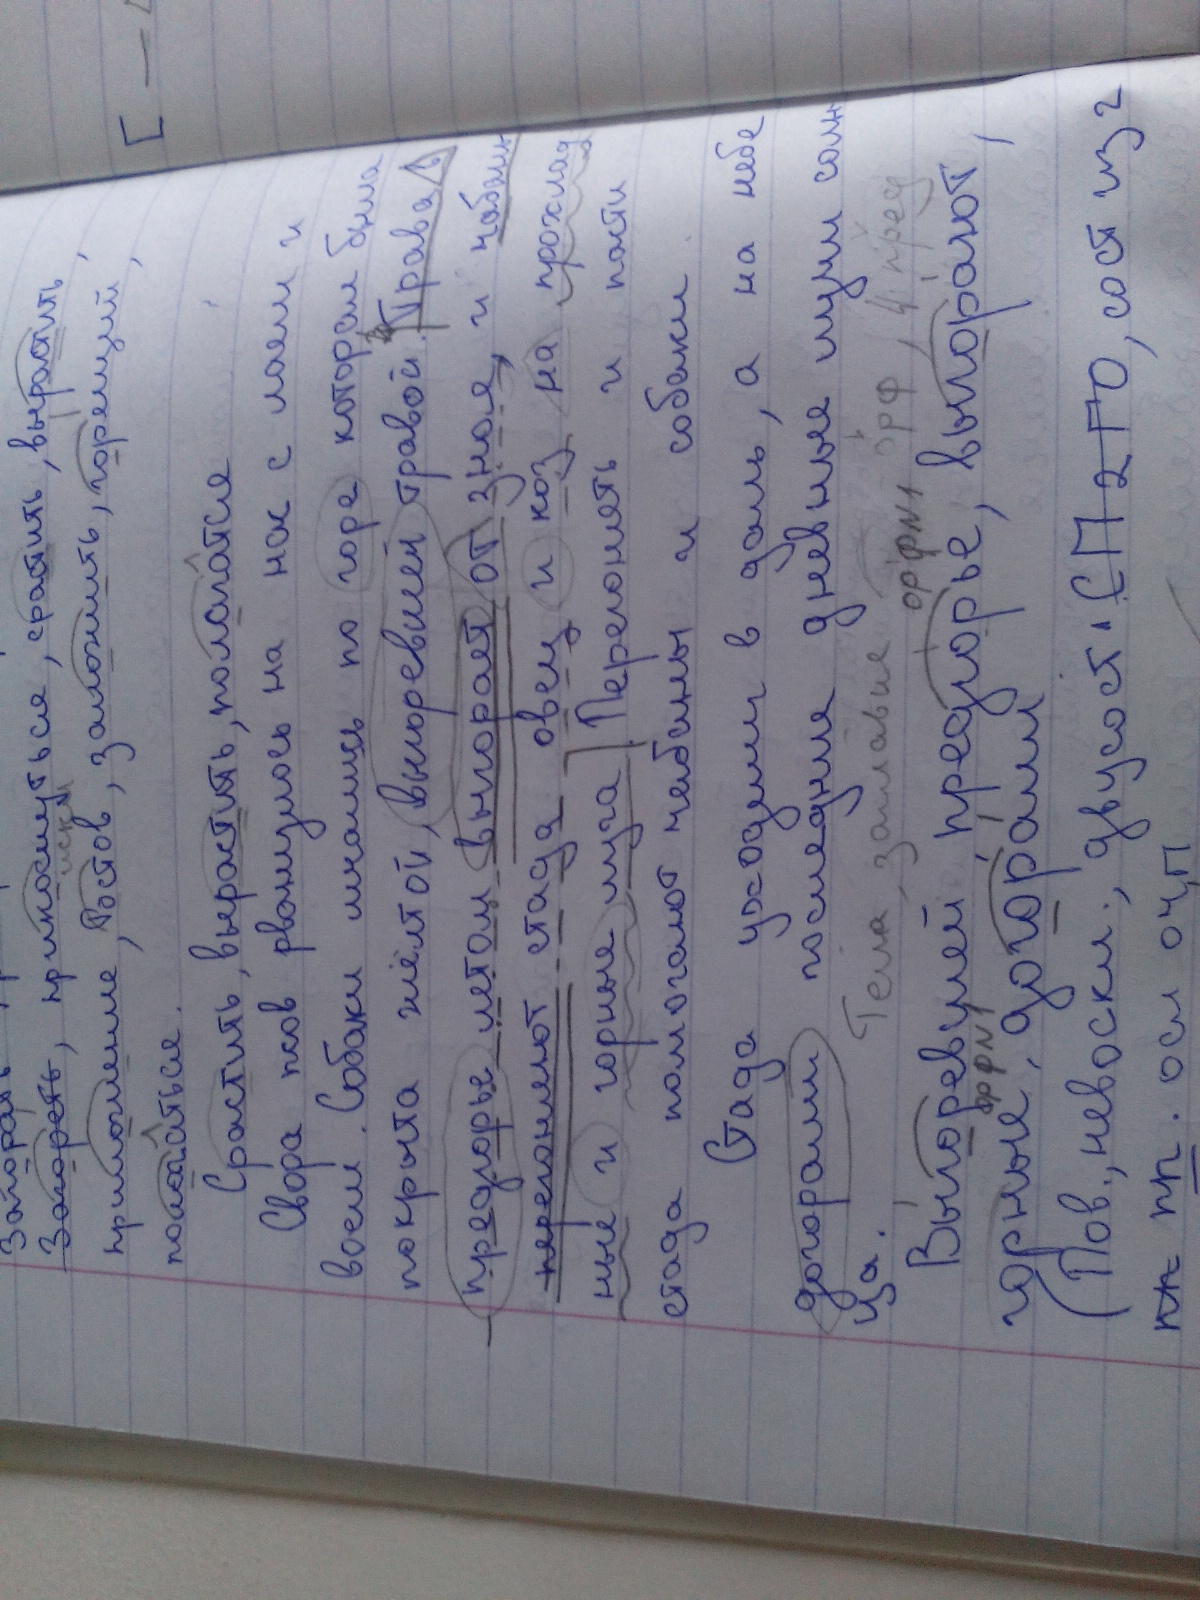 Загорать
Загореть, прикоснуться, срастить, вырастить,
искл
приложение, Ростов, заложить, горещий,
полагаться.
Срастить, вырастить, полагатся
Свора псов рванулось на нас с лаем и
воем. Собаки мчались по горе которая была
покрыта жёлтой, выгоревшей травой. Трава в
предгорье летом выгорает от зноя, и чабаны
перегоняют стада овец и коз на прохлад
ные и горные луга. Перегонять и пасти
стада помогают чабаны и собаки.
Стада уходили в даль, а на небе
догорали последние дневные лучи солн
ца.
Тема, заглавие, орф, 4 пред
орфN1
Выгоревшей предгорье, выгорают,
орфN1
горные, догорали
(Пов., невоскл., двусост. СП 2 ГО, сост из 2
пп. осл оч,п
[ —